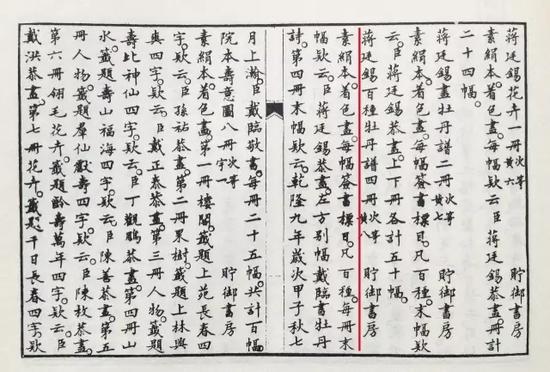 蔣廷錫花卉一冊 次等黃六 貯御書房
素絹本。着色畫。每幅款云。臣蔣廷錫恭畫。冊計
二十四幅。
蔣廷錫畫牡丹譜二冊 次等黃七 貯御書房
素絹本。着色畫。每幅簽書標目。凡百種。末幅款
云。臣蔣廷錫恭畫。上下冊各計五十幅。
蔣廷錫百種牡丹譜四冊 次等黃八 貯御書房
素絹本。着色畫。每幅簽書標目。凡百種。每冊末
幅款云。臣蔣廷錫恭畫。左方別幅戴臨書牡丹
詩。第四冊末幅款云。乾隆九年歲次甲子秋七
月上瀚。臣戴臨敬書。每冊二十五幅。共計百幅。
院本壽意圖八冊 次等宇一 貯御書房
素絹本。着色畫。第一冊樓閣。籤題上苑長春四
字。款云。臣孫祜恭畫。第二冊果樹。籤題上林與
與四字。款云。臣戴正泰恭畫。第三冊人物。籤題
壽比神仙四字。款云。臣丁觀鵬恭畫。第四冊山
水。籤題壽山福海四字。款云。臣陳善恭畫。第五
冊人物。籤題羣仙獻壽四字。款云。臣陳枚恭畫。
第六冊翎毛花卉。籤題齡壽萬年四字。款云。臣
戴洪恭畫。第七冊花卉。籤題千日長春四字。款